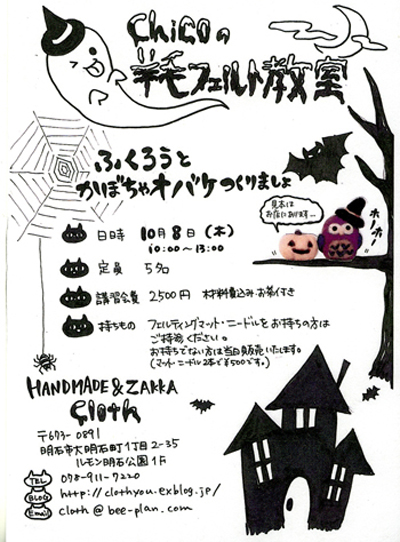 Chicoの
羊毛フェルト教室
ふくろうと
かぼちゃオバケつくりましょ
見本は
お店にあります…
ホーホー
日時 10月8日(木)
10:00~13:00
定員 5名
講習会費 2500円 材料費込み・お茶付き
持ちもの フェルティングマット・ニードルをお持ちの方は
ご持参ください。
お持ちでない方は当日販売いたします。
(マット・ニードル2本で¥500です。)
HANDMADE & ZAKKA
Cloth
〒673-0891
明石市大明石町1丁目2-35
ルモン明石公園1F
TEL 078-911-7220
BLOG http://clothyou.exblog.jp/
Email cloth@bee-plan.com